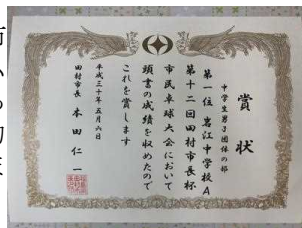 賞状
中学生男子団体の部
第一位 岩江中学校A
第十二回田村市長杯
市民卓球大会において
頭書の成績を収めたので
これを賞します
平成三十年五月六日
田村市長 本田仁一